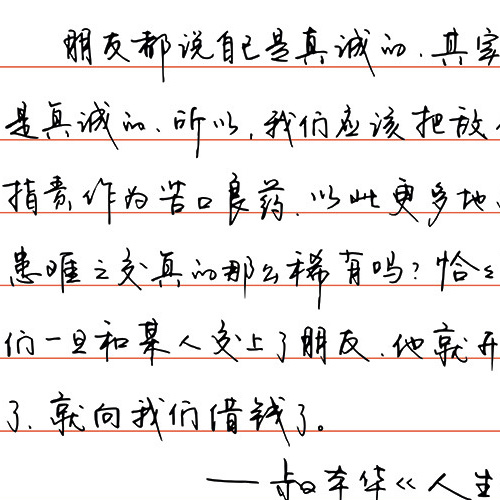 朋友都说自己是真诚的，其实
是真诚的，所以，我们应该把敌
指责作为苦口良药，以此更多地
患难之交真的那么稀有吗？恰
们一旦和某人交上了朋友，他就开
了，就向我们借钱了。
——叔本华《人生